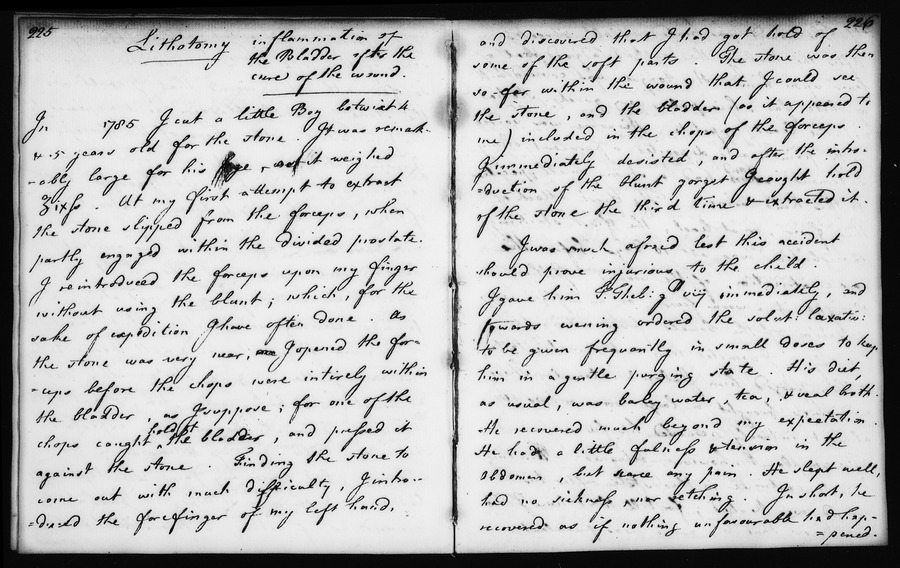 225
Lithotomy inflammation of
the Bladder after the
cure of the wound.
In 1785 I cut a little Boy betwixt 4
& 5 years old for the stone. It was remark-
-ably large for his age, it weighed
℥ixſs. At my first attempt to extract
the stone slipped from the forceps, when
partly engaged within the divided prostate.
I reintroduced the forceps upon my finger
without using the blunt; which, for the
sake of expedition I have often done. As
the stone was very near, I opened the for=
-ceps before the chops were intirely within
the bladder as I suppose; for one of the
chops caught hold of the bladder, and pressed it
against the stone. Finding the stone to
come out with much difficulty, I intro-
=duced the forefinger of my left hand,
226
and discovered that I had got hold of
some of the soft parts. The stone was then
so far within the wound that I could see
the stone, and the bladder (as it appeared to
me) included in the chops of the forceps.
I immediately desisted, and after the intro-
=duction of the blunt gorget I caught hold
of the stone the third time & extracted it.
I was much afraid lest this accident
should prove injurious to the child.
I gave him T. Theb: gtt viij immediately, and
towards evening ordered the solut: laxativ:
to be given frequently in small doses to keep
him in a gentle purging state. His diet
as usual, was barley water, tea, & veal broth.
He recovered much beyond my expectation.
He had a little fulness & tension in the
abdomen, but scarce any pain. He slept well,
had no sickness, nor retching. In short, he
recovered as if nothing unfavourable had hap-
=pened.